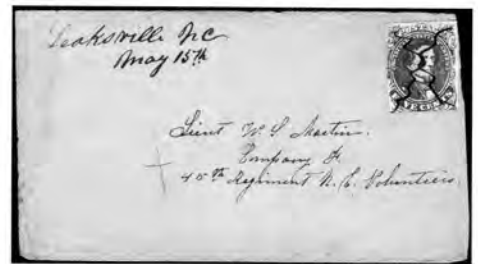 Leaksville NC
May 15th
Lieut W. S. Martin.
Company H.
45th Regiment N. C. Volunteers